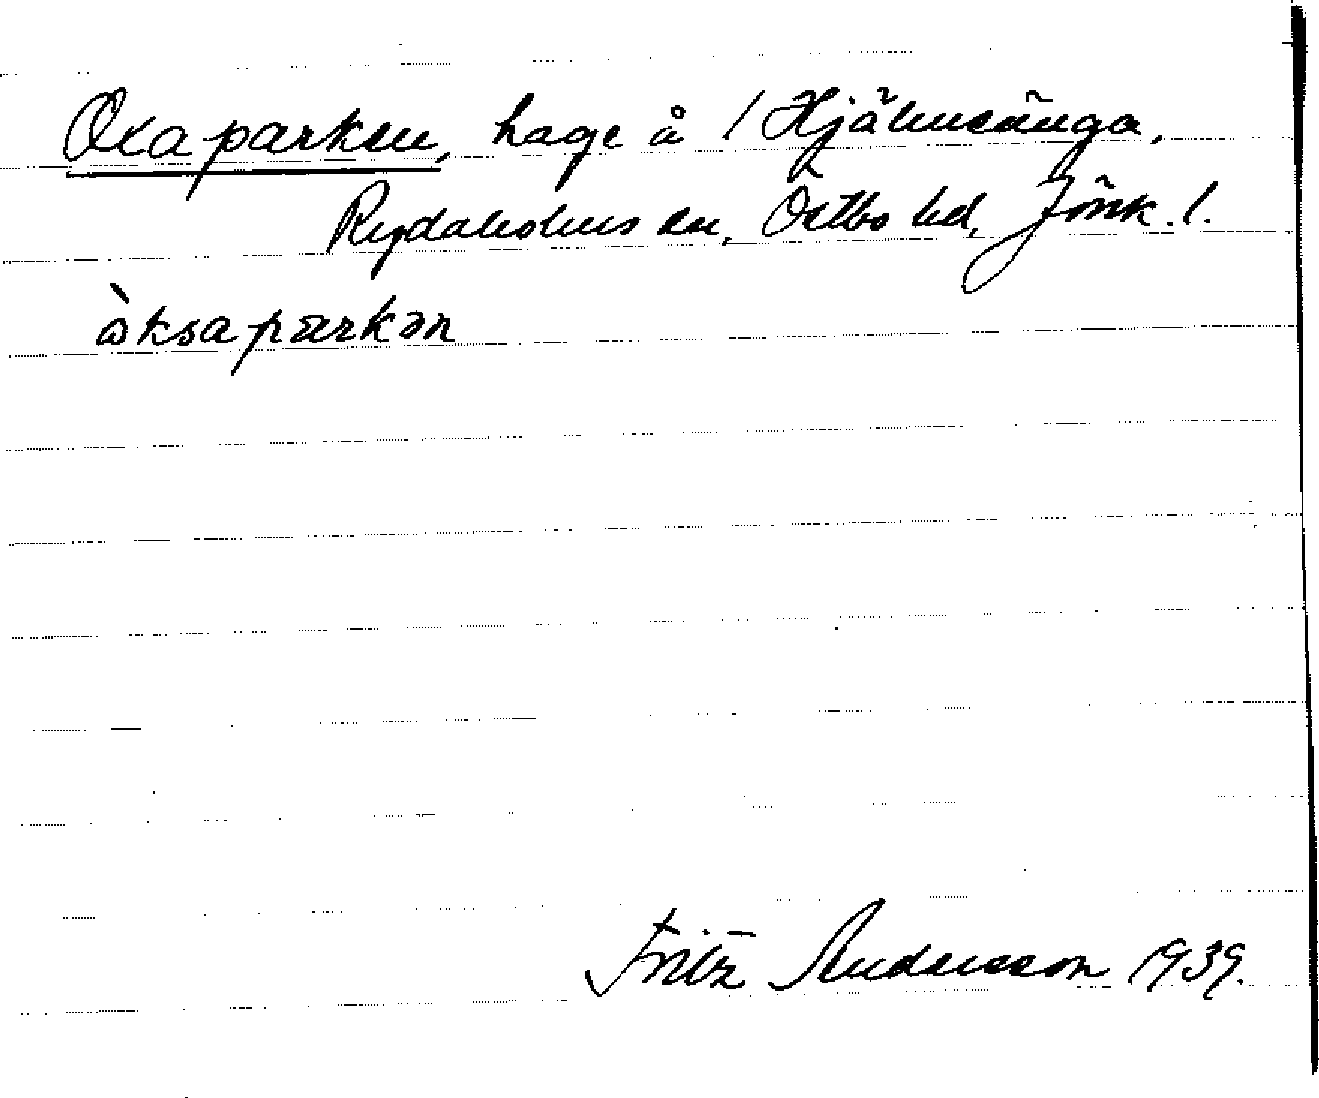 Oxaparken, hage å / Hjälmsänga,
Rydaholms sn, Östbo hd, Jönk. l.
òksaparkən
Fritz Andersson 1939.